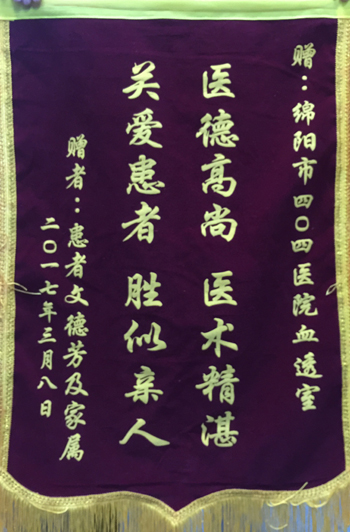 赠：绵阳市四〇四医院血透室
医德高尚 医术精湛
关爱患者 胜似亲人
赠者：患者文德芳及家属
二〇一七年三月八日